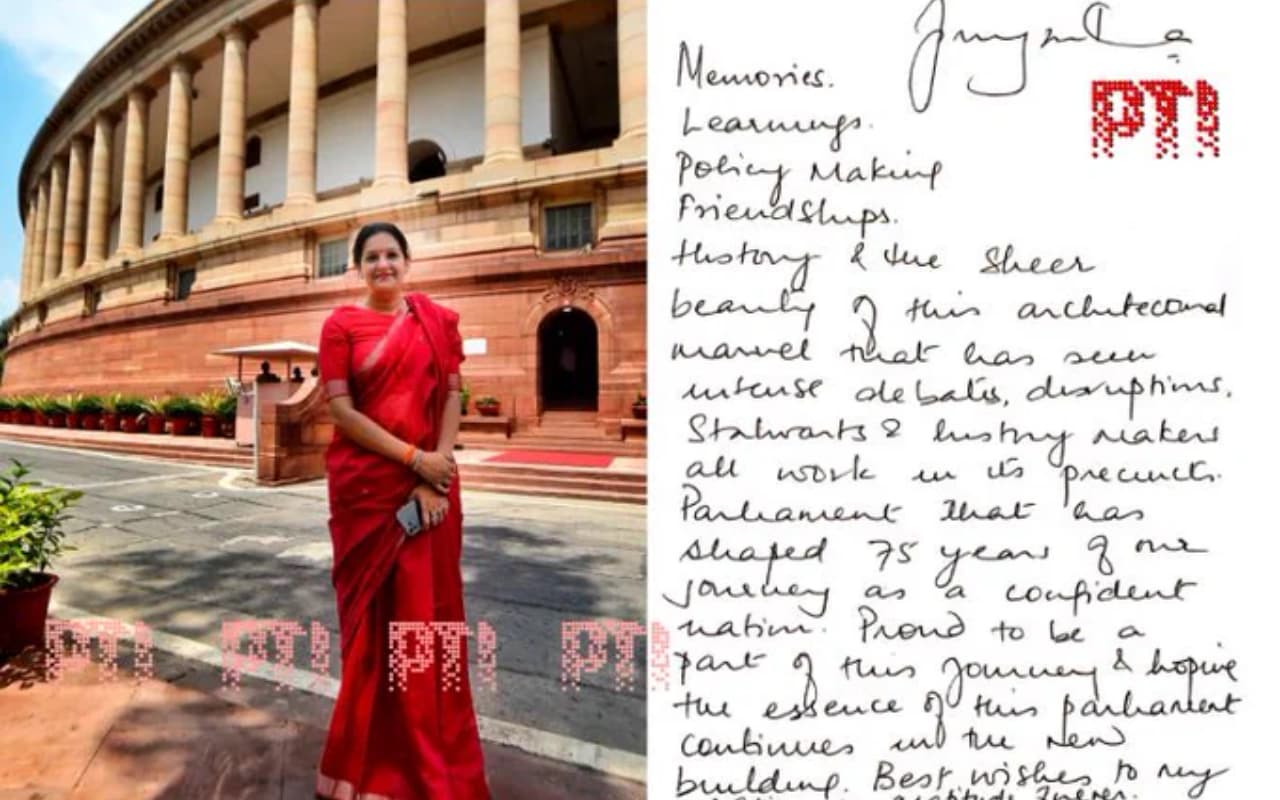 Priyanka
PTI
Memories.
Learnings.
Policy Making
Friendships.
History & the sheer
beauty of this architectural
marvel that has seen
intense debates, disruptions.
Stalwarts & history makers
all work in its precincts.
Parliament that has
shaped 75 years of our
journey as a confident
nation. Proud to be a
part of this journey & hoping
the essence of this parliament
continues in the new
building. Best wishes to my
gratitude
PTI PTI PTI PTI